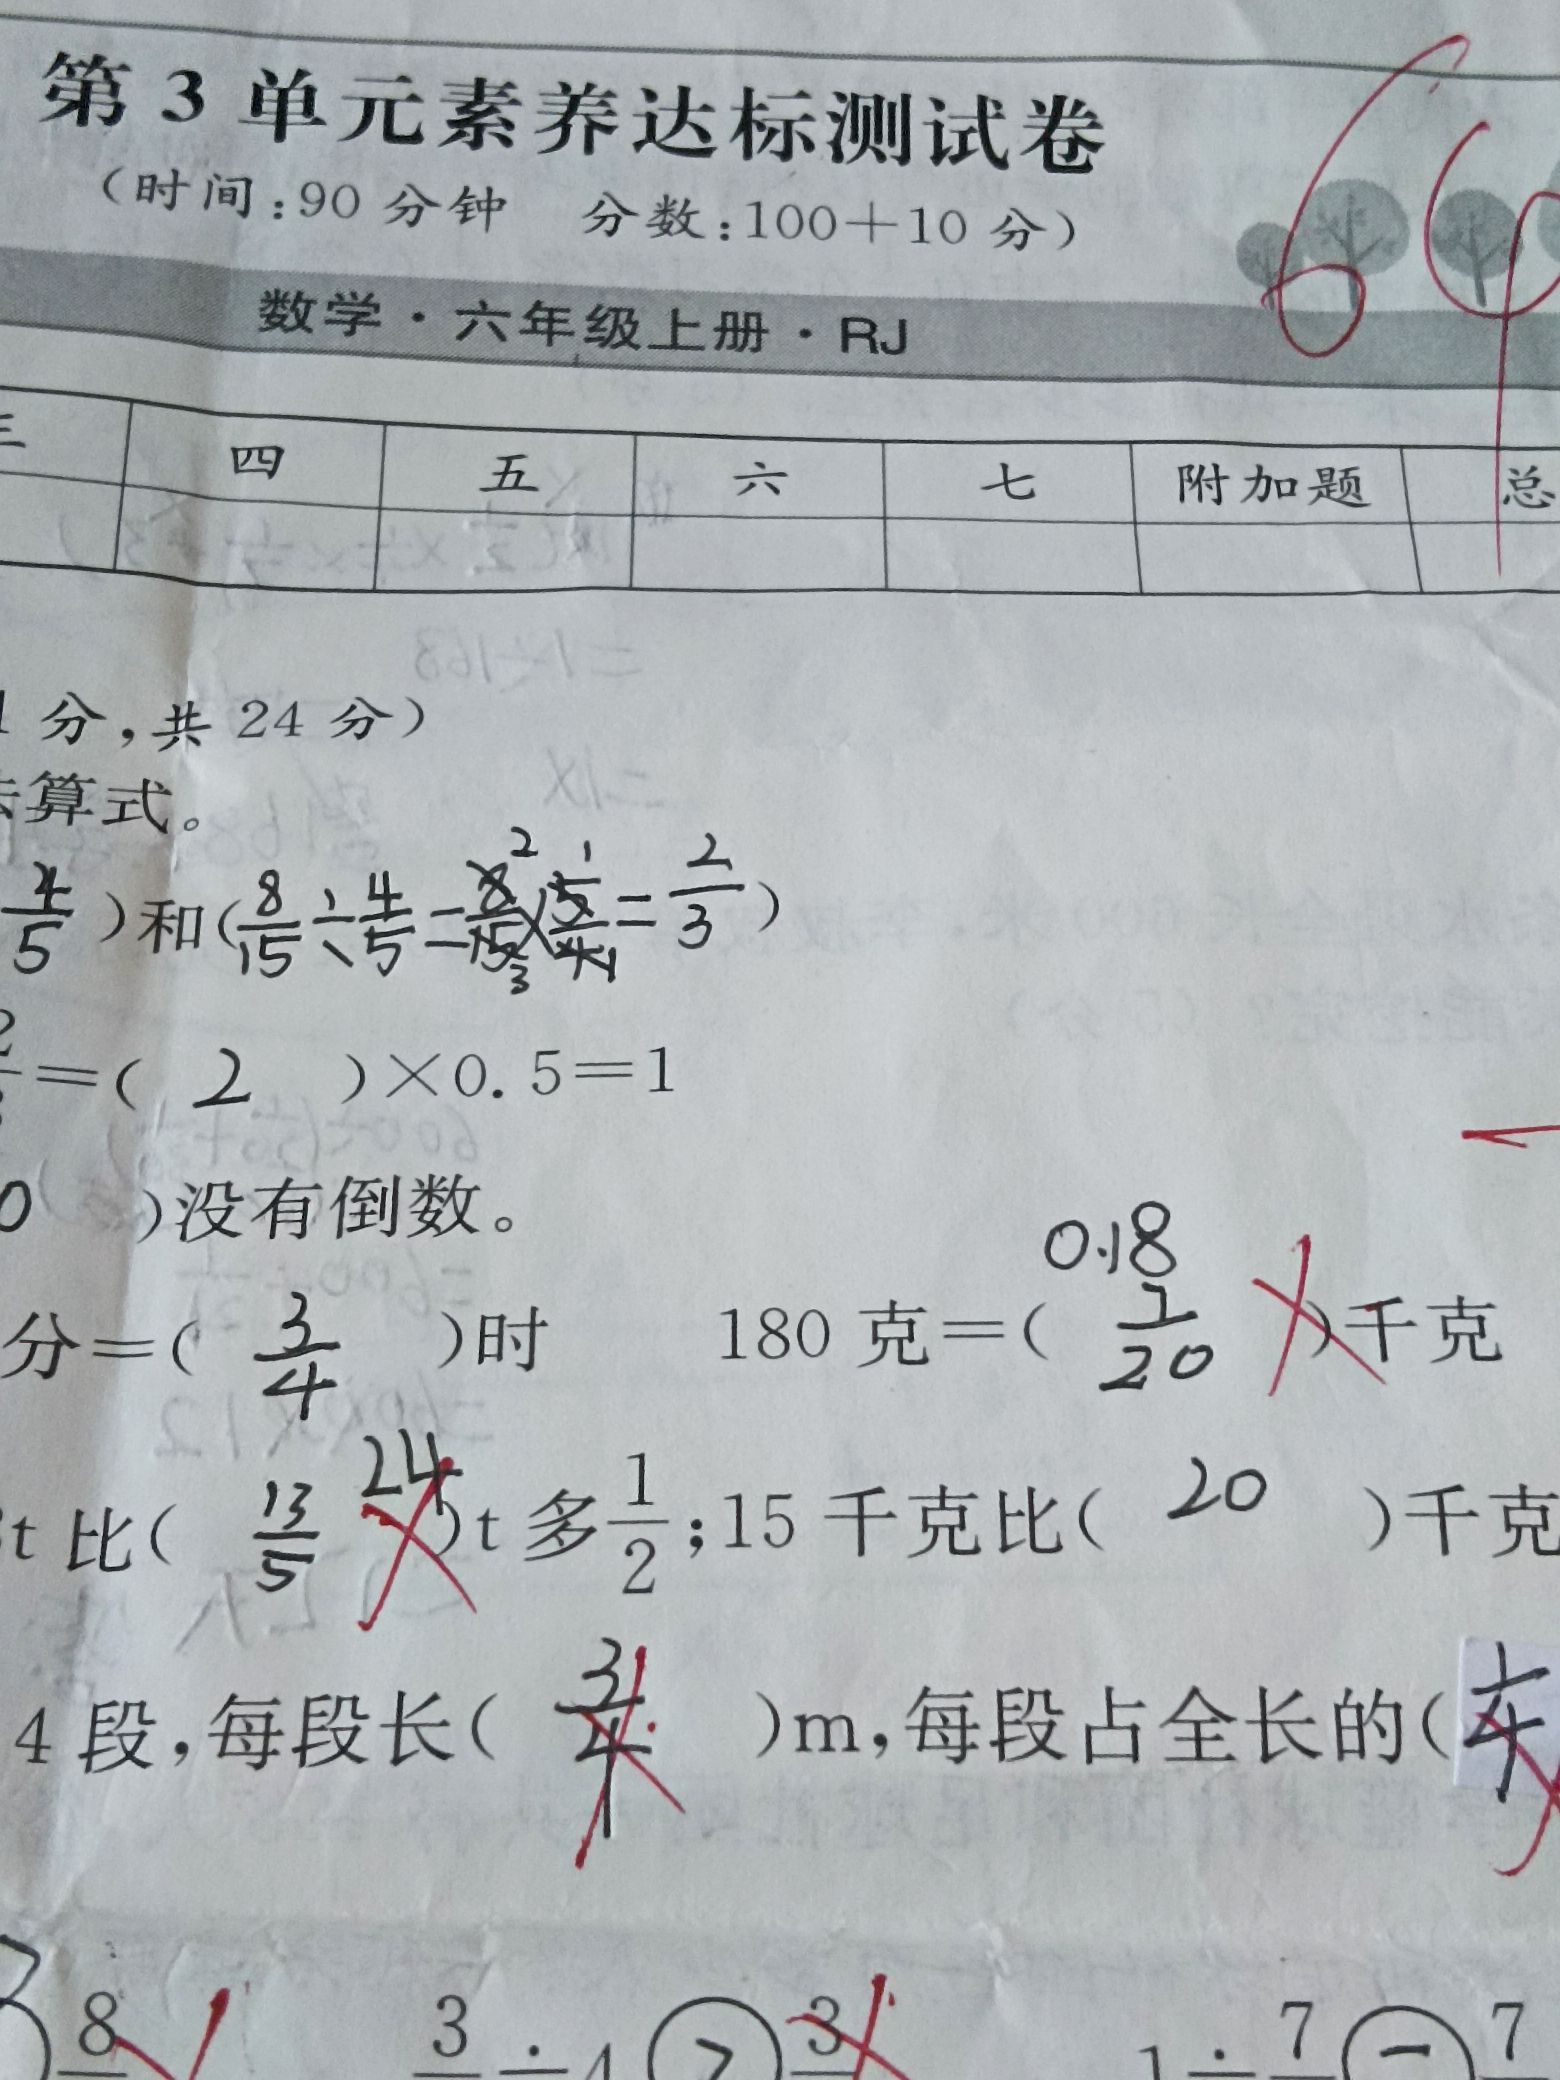 第 3 单元素养达标测试卷
(时间:90 分钟 分数:100+10 分)
64
数学·六年级上册·RJ
三 四 五 六 七 附加题 总
分,共 24 分)
算式。
4/5 )和(8/15÷4/5=8/15×5/4=2/3)
=( 2 )×0.5=1
0 )没有倒数。
分=( 3/4 )时 180 克=( 0.18 1/20 )千克
t 比( 13/5 24 )t 多1/2;15 千克比( 20 )千克
4 段,每段长( 3/4 )m,每段占全长的( 1/4
8 3÷4 > 3 1÷7 = 7